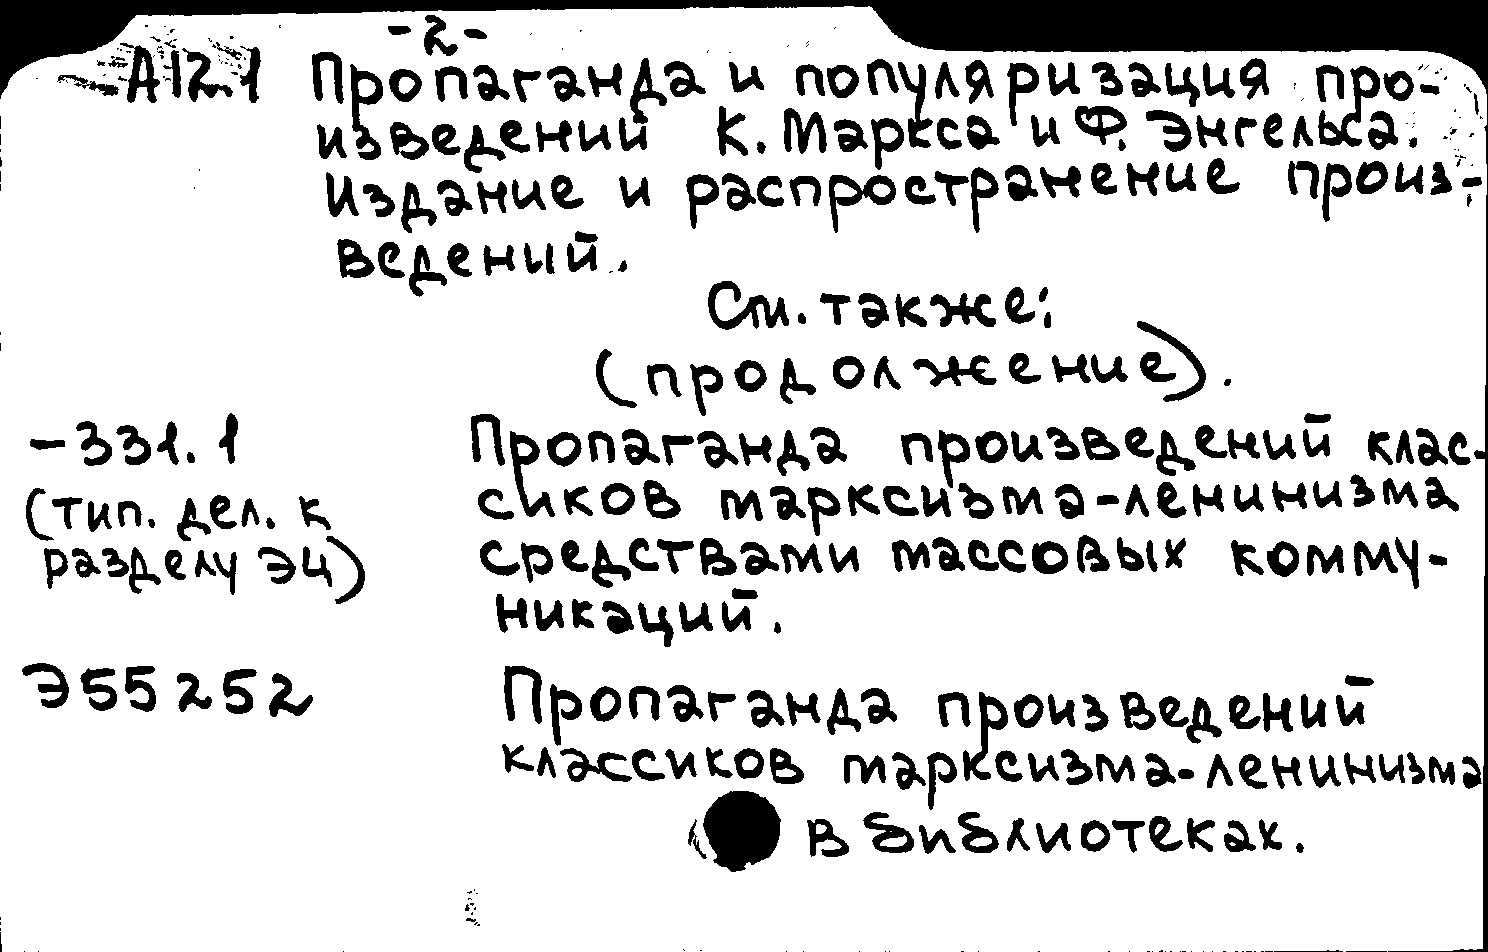 -2-
А12.1 Пропаганда и популяризация про-
изведений К. Маркса и Ф. Энгельса.
Издание и распространение произ-
ведений.
См. также:
(продолжение).
-331.1 Пропаганда произведений клас-
(тип. дел. к сиков марксизма-ленинизма
разделу Э4) средствами массовых комму-
никаций.
Э55252 Пропаганда произведений
классиков марксизма-ленинизма
в библиотеках.